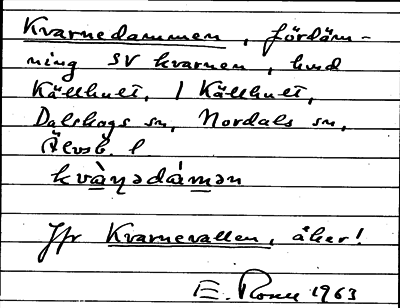 Kvarnedammen, fördäm-
ning SV kvarnen, hmd
Källhult, 1 Källhult,
Dalskogs sn, Nordals sn,
Älvsb. l
kvàṇədámən
Jfr Kvarnevallen, åker!
E. 1963